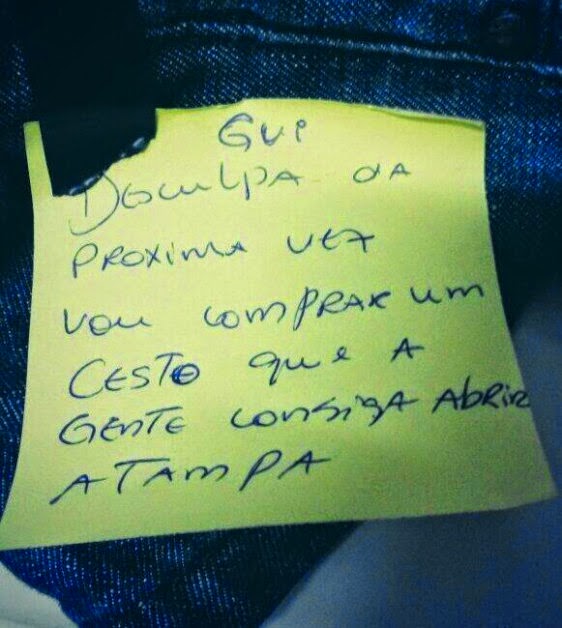 GUI
DESCULPA DA
PROXIMA VEZ
VOU COMPRAR UM
CESTO QUE A
GENTE CONSIGA ABRIR
A TAMPA